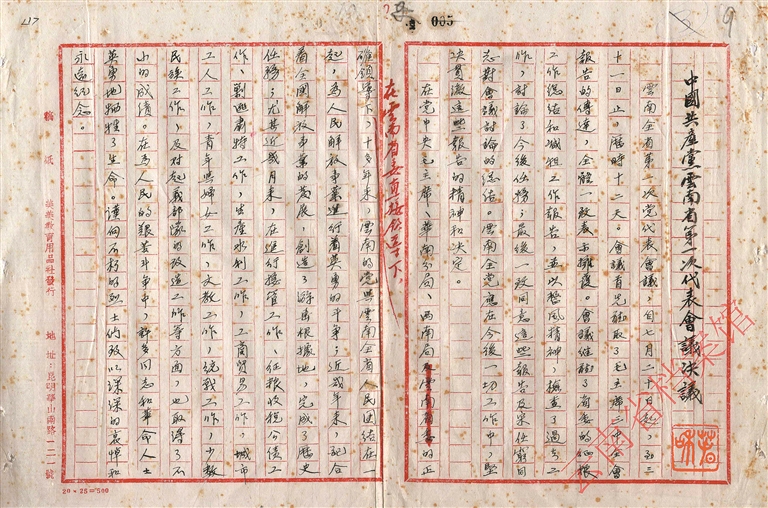 005
9
117
中國共產黨雲南省第一次代表會議決議
雲南全省第一次党代表會議,自七月二十日起,至三
十一日止,歷時十二天。會議首先聽取了毛主席三中全會
報告的傳達,全體一致表示擁護。會議聽取了省委的征粮
工作總結和減租工作報告,並以整風精神,檢查了過去工
作,討論了今後任務;最後一致同意這些報告及宋任窮同
志對會議討論的總結。雲南全党應在今後一切工作中,堅
決貫徹這些報告的精神和決定。
在党中央毛主席、華南分局、西南局及雲南省委的正
在雲南省委直接領導下,
確領導下,十多年來,雲南的党與雲南全省人民團結在一
起,為人民解放事業進行着英勇的斗爭;近幾年來,配合
着全國解放事業的發展,創造了游擊根據地,完成了歷史
任務;尤其近幾月來,在進行接管工作、征粮收稅公債工
作、剿匪肅特工作、生產水利工作、工商貿易工作、城市
工人工作、青年與婦女工作、文教工作、統戰工作、少數
民族工作、及对起義部隊的改造工作等方面,也取得了不
小的成績。在為人民的艱苦斗爭中,許多同志和革命人士
英勇地犧牲了生命。謹向不朽的烈士們致以深深的哀悼和
永遠紀念。
稿紙 教育用品社發行 地址:昆明華山南路一二一號
20×25=500
雲南省檔案館